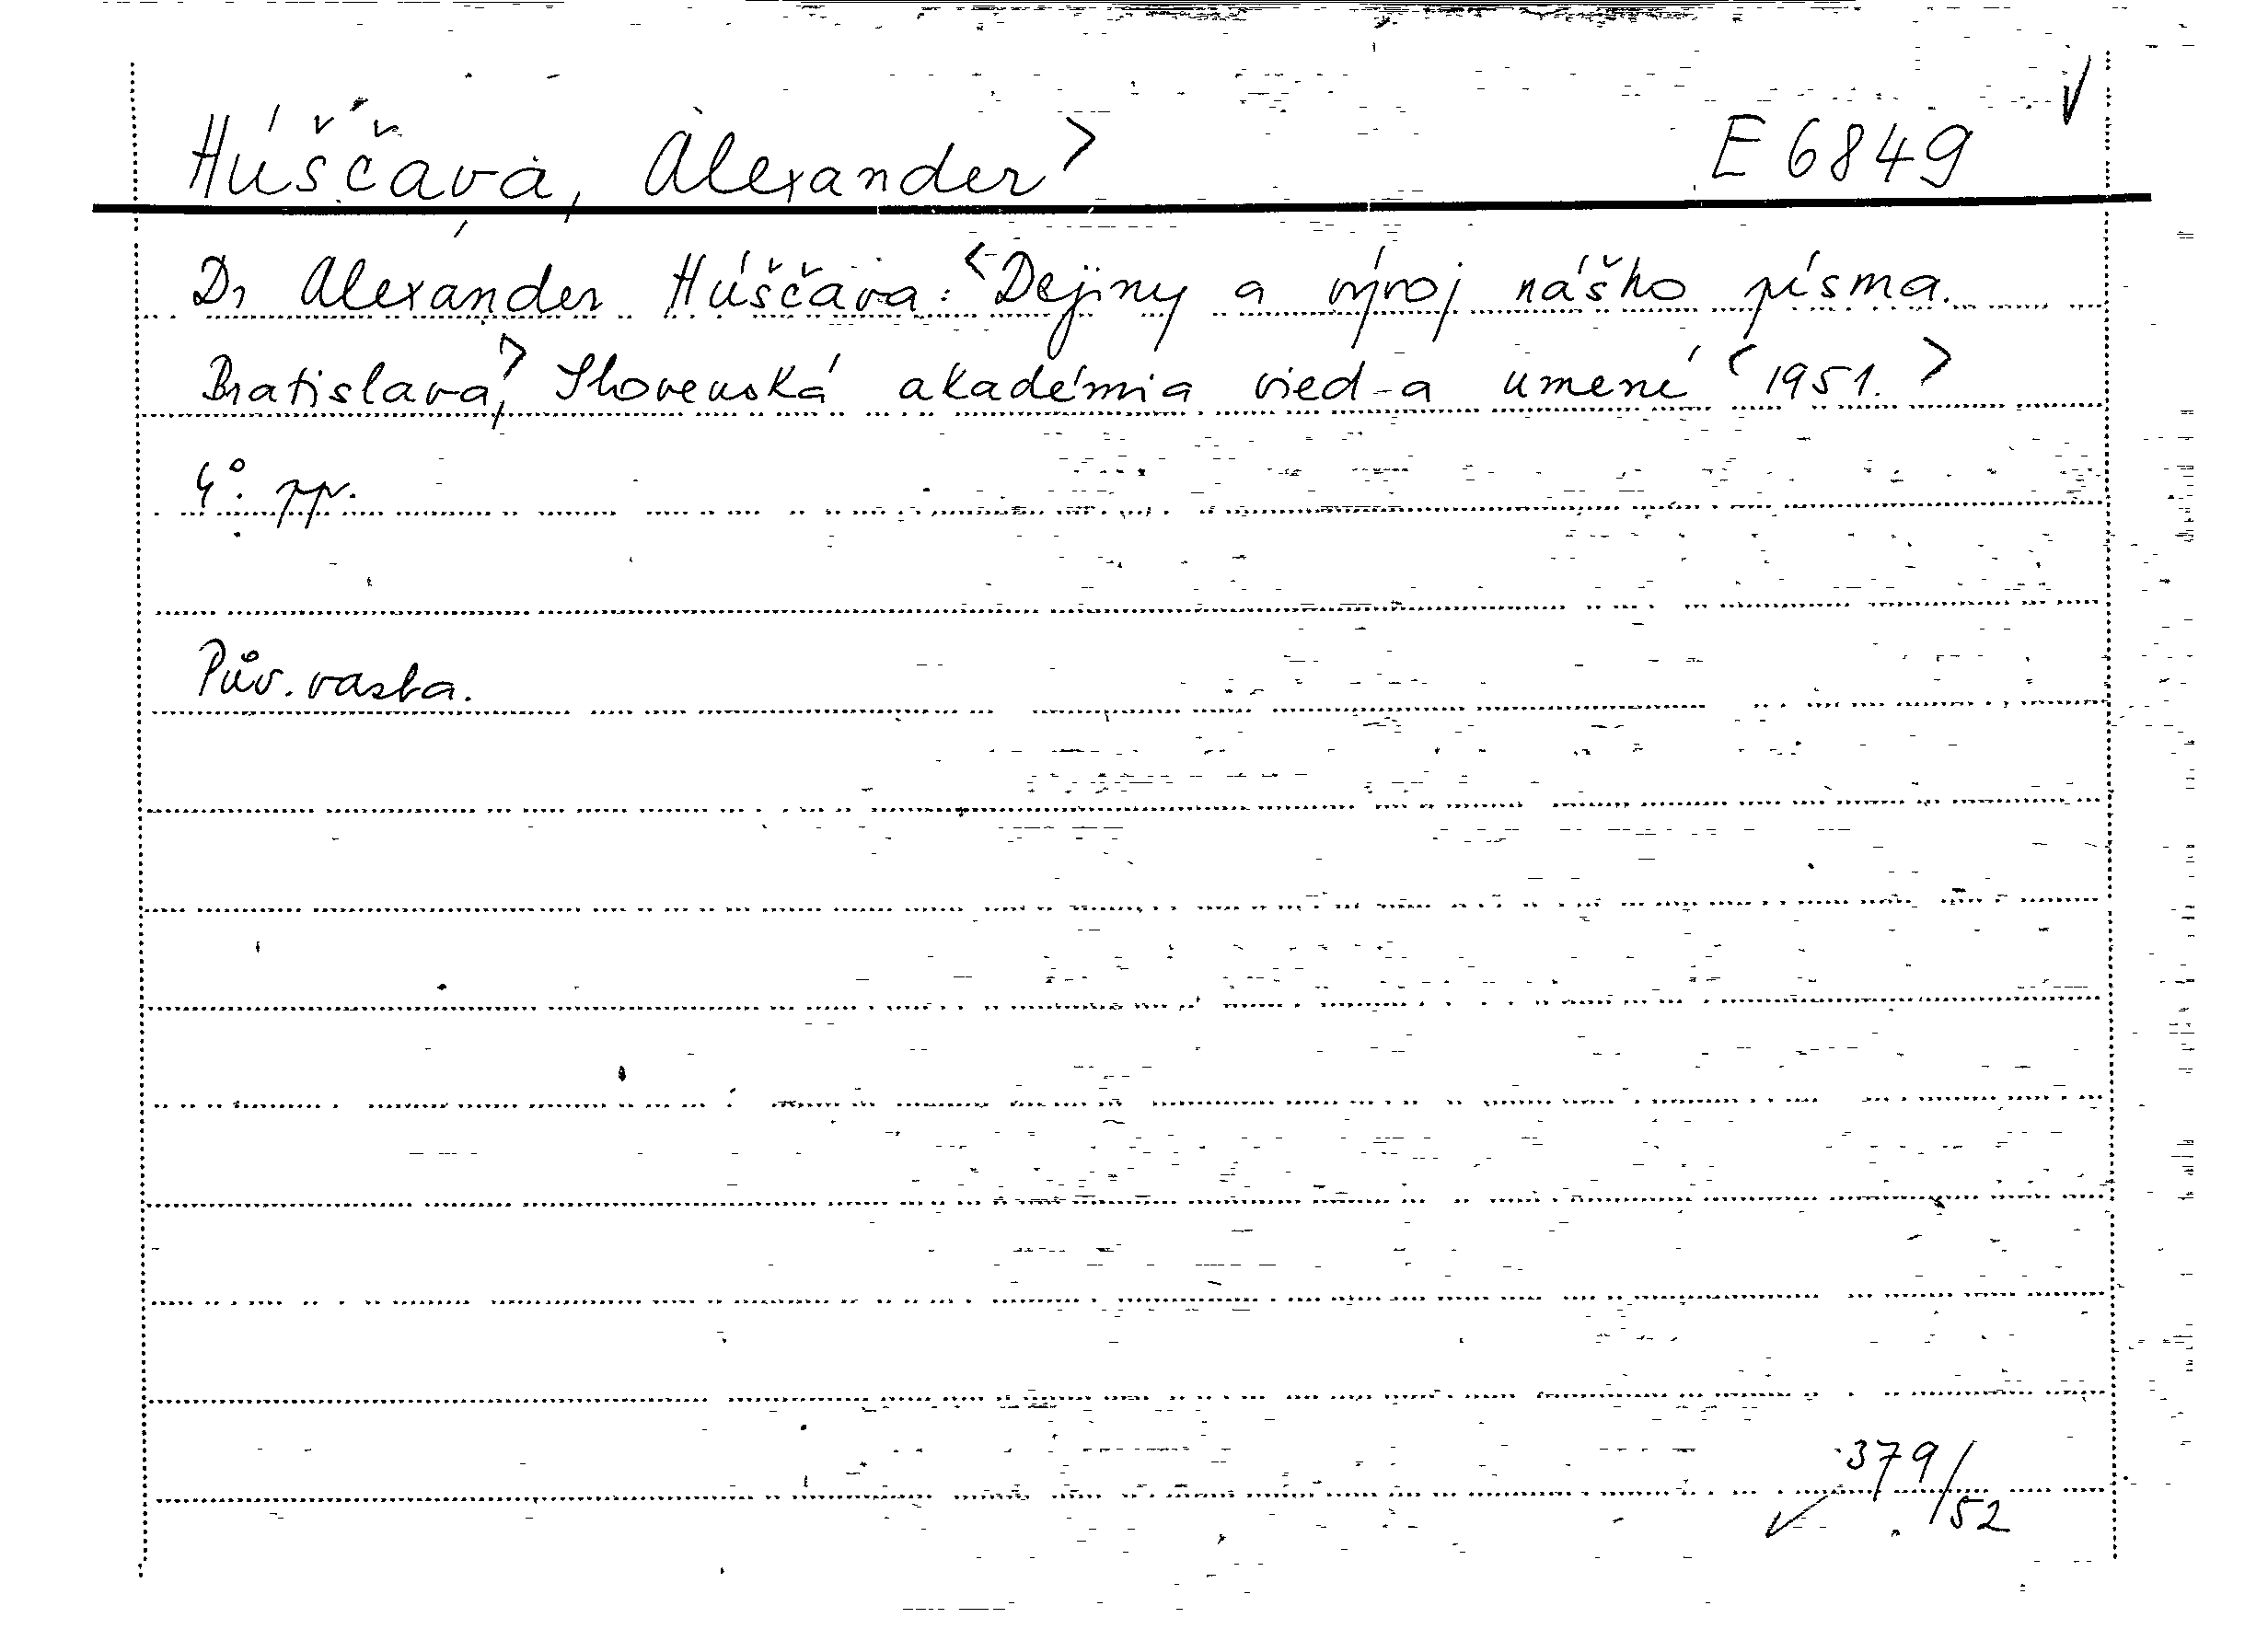 Húščava, Alexander> E 6849
Dr Alexander Húščava: <Dejiny a vývoj nášho písma.
Bratislava,> Slovenská akadémia vied a umení <1951.>
4°. pp.
Pův. vazba.
379/52